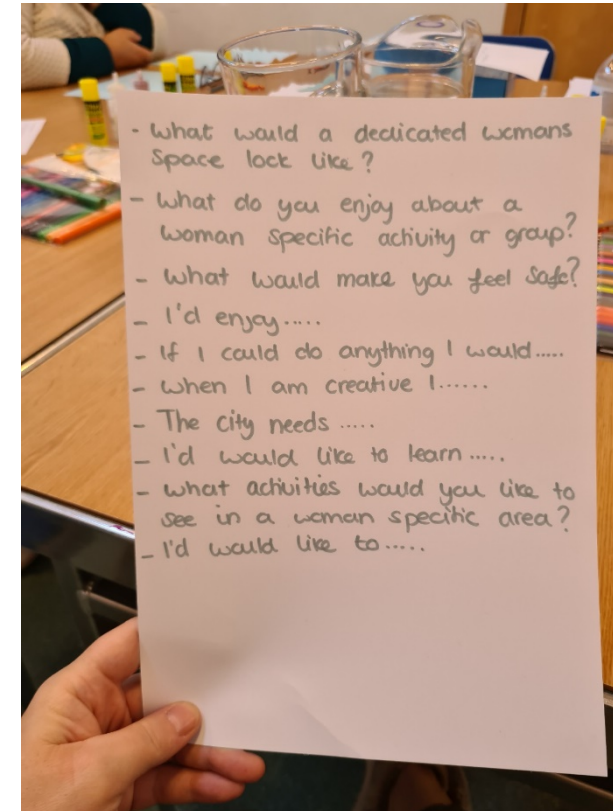 - What would a dedicated womans
Space look like?
- What do you enjoy about a
woman specific activity or group?
- What would make you feel safe?
- I'd enjoy.....
- If I could do anything I would.....
- When I am creative I......
- The city needs .....
- I'd would like to learn .....
- What activities would you like to
see in a woman specific area?
- I'd would like to.....